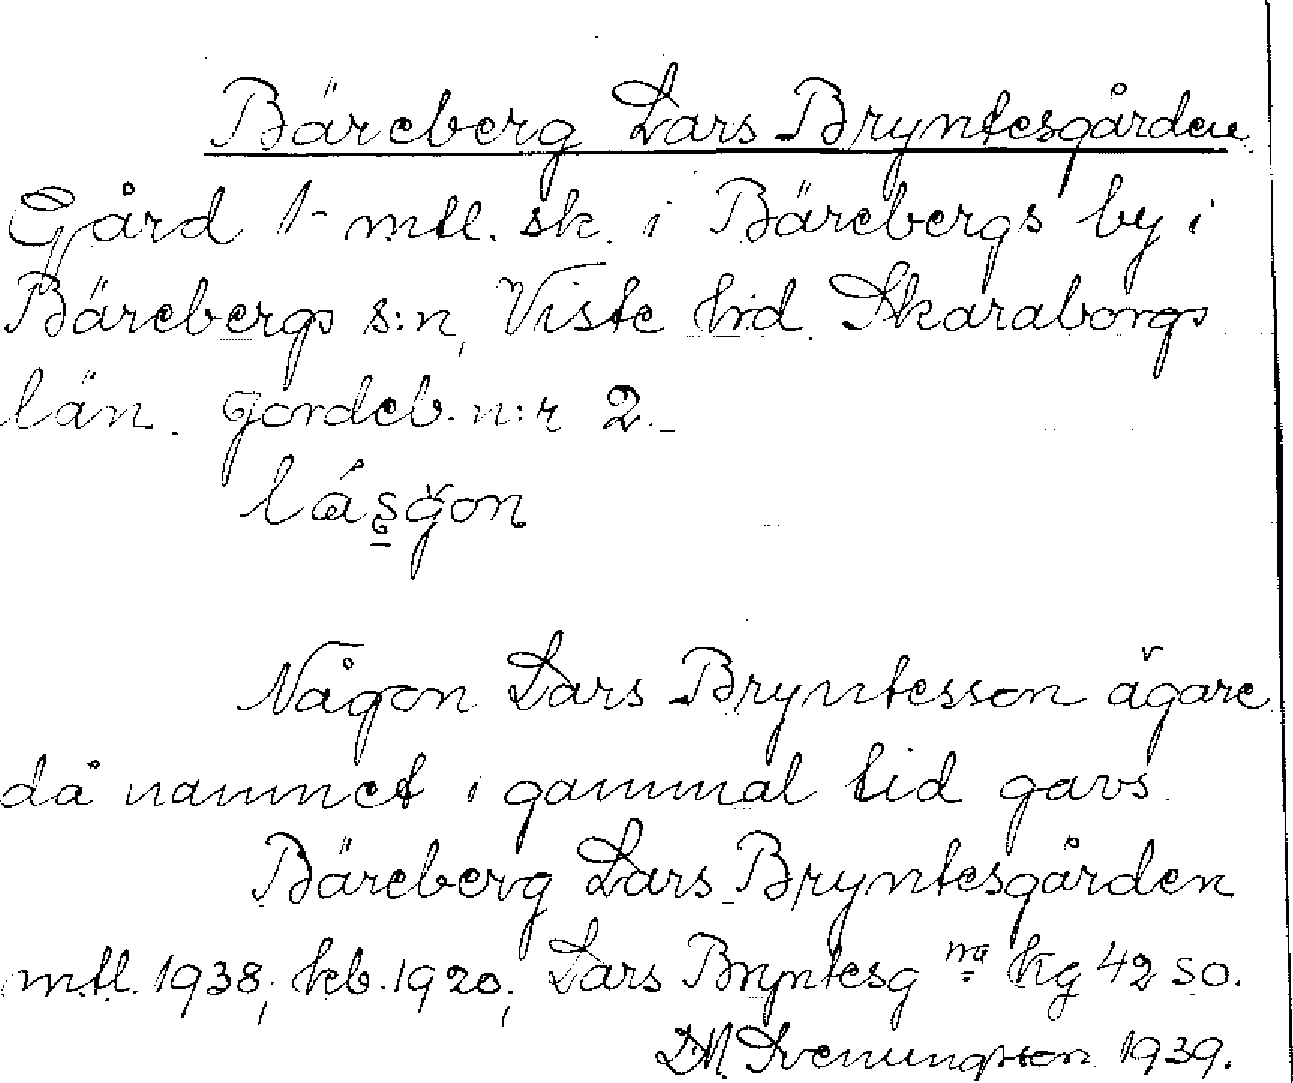 Bäreberg Lars Bryntesgården
Gård 1 mtl. sk. i Bärebergs by i
Bärebergs s:n, Viste hrd. Skaraborgs
län. Jordeb. n:r 2.
lásgon
Någon Lars Bryntesson ägare
då namnet i gammal tid gavs.
Bäreberg Lars Bryntesgården
mtl. 1938; kb. 1920; Lars Bryntesg kg 42 SO.
Svenungsson 1939.